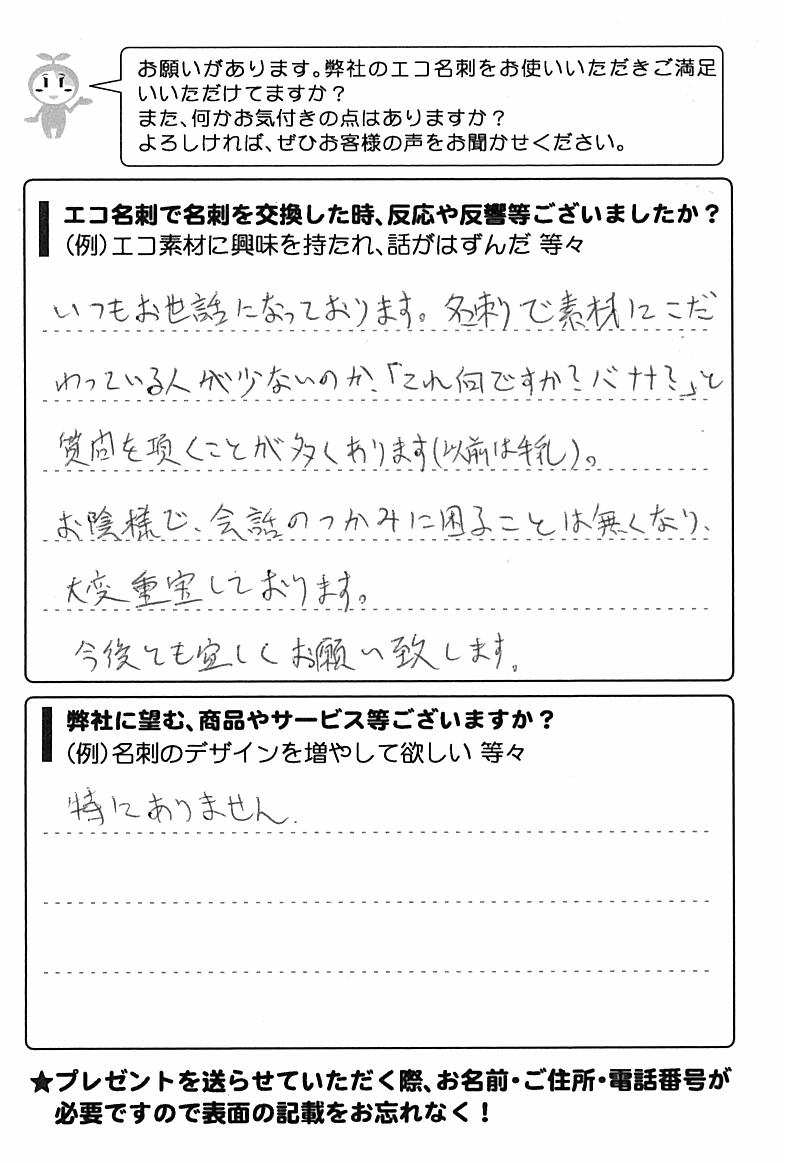 お願いがあります。弊社のエコ名刺をお使いいただきご満足
いいただけてますか？
また、何かお気付きの点はありますか？
よろしければ、ぜひお客様の声をお聞かせください。
エコ名刺で名刺を交換した時、反応や反響等ございましたか？
（例）エコ素材に興味を持たれ、話がはずんだ 等々
いつもお世話になっております。名刺で素材にこだ
わっている人が少ないのか、「これ何ですか？バナナ？」と
質問を頂くことが多くあります(以前は牛乳)。
お陰様で、会話のつかみに困ることは無くなり、
大変重宝しております。
今後とも宜しくお願い致します。
弊社に望む、商品やサービス等ございますか？
（例）名刺のデザインを増やして欲しい 等々
特にありません.
★プレゼントを送らせていただく際、お名前・ご住所・電話番号が
必要ですので表面の記載をお忘れなく！